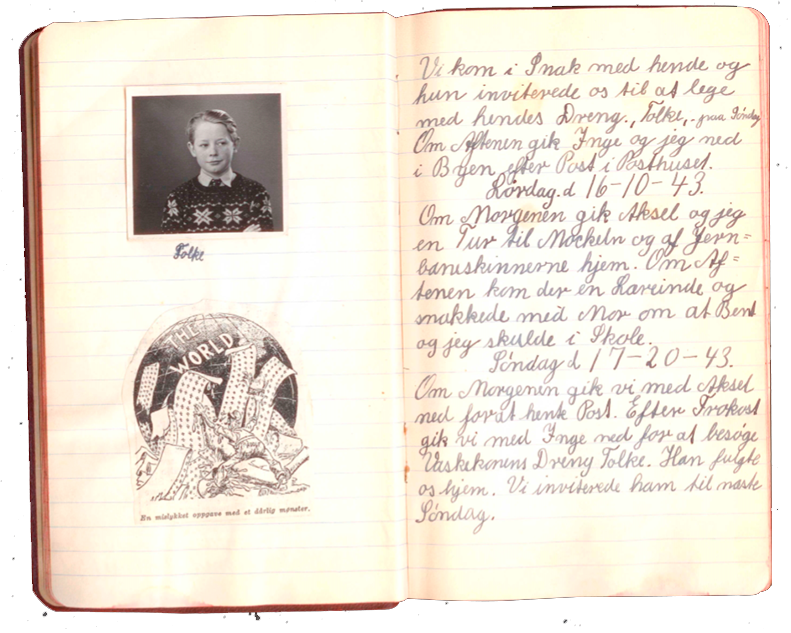 Folke
THE
WORLD
En mislykket oppgave med et dårlig mønster.
Vi kom i Snak med hende og
hun inviterede os til at lege
med hendes Dreng, Folke, paa Søndag
Om Aftenen gik Inge og jeg ned
i Byen efter Post i Posthuset.
Lørdag.d 16-10-43.
Om Morgenen gik Aksel og jeg
en Tur til Möckeln og af Jern=
baneskinnerne hjem. Om Af=
tenen kom der en Lærinde og
snakkede med Mor om at Bent
og jeg skulde i Skole.
Søndag d 17-20-43.
Om Morgenen gik vi med Aksel
ned for at hente Post. Efter Frokost
gik vi med Inge ned for at besøge
Vaskekonens Dreng Folke. Han fulgte
os hjem. Vi inviterede ham til næste
Søndag.